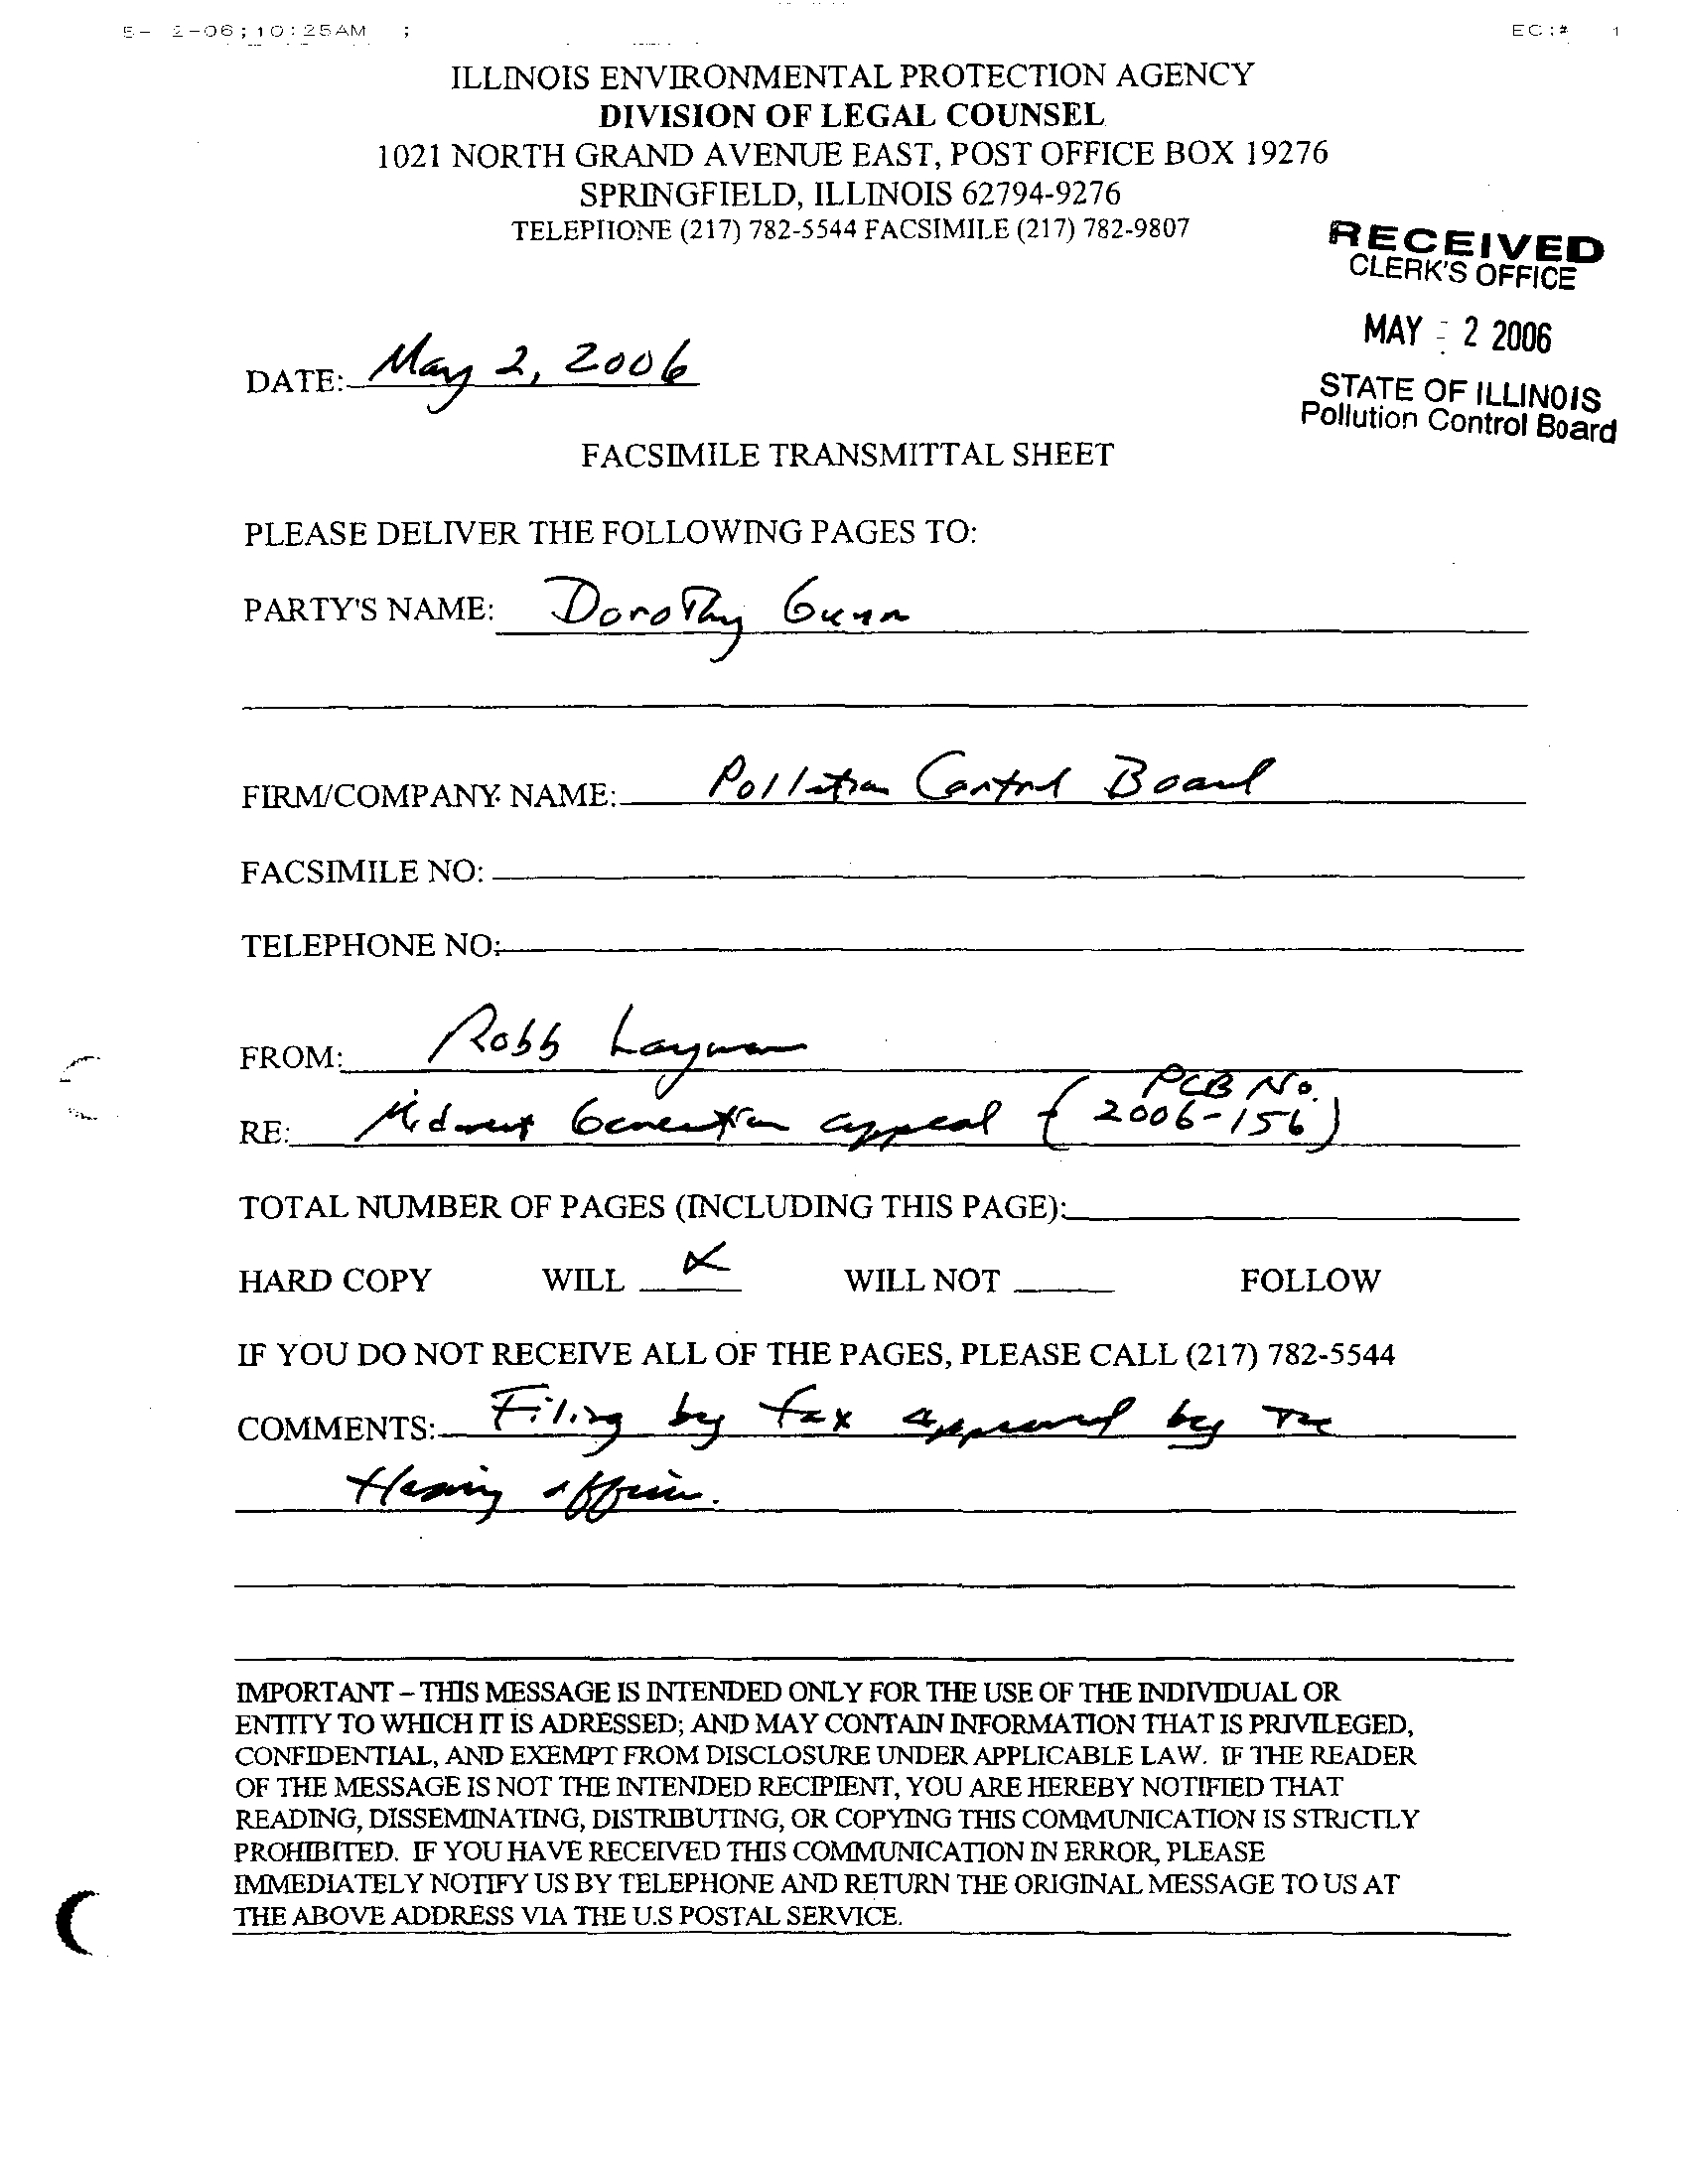 5- 2-06;10:25AM ; EC:# 1
ILLINOIS ENVIRONMENTAL PROTECTION AGENCY
DIVISION OF LEGAL COUNSEL
1021 NORTH GRAND AVENUE EAST, POST OFFICE BOX 19276
SPRINGFIELD, ILLINOIS 62794-9276
TELEPHONE (217) 782-5544 FACSIMILE (217) 782-9807
RECEIVED
CLERK'S OFFICE
MAY - 2 2006
STATE OF ILLINOIS
Pollution Control Board
DATE: May 2, 2006
FACSIMILE TRANSMITTAL SHEET
PLEASE DELIVER THE FOLLOWING PAGES TO:
PARTY'S NAME: Dorothy Gunn
FIRM/COMPANY NAME: Pollution Control Board
FACSIMILE NO:
TELEPHONE NO:
FROM: Robb Layman
RE: Midwest Generation appeal (PCB No. 2006-156)
TOTAL NUMBER OF PAGES (INCLUDING THIS PAGE):
HARD COPY WILL X WILL NOT FOLLOW
IF YOU DO NOT RECEIVE ALL OF THE PAGES, PLEASE CALL (217) 782-5544
COMMENTS: Filing by fax approved by the
Hearing officer.
IMPORTANT – THIS MESSAGE IS INTENDED ONLY FOR THE USE OF THE INDIVIDUAL OR
ENTITY TO WHICH IT IS ADRESSED; AND MAY CONTAIN INFORMATION THAT IS PRIVILEGED,
CONFIDENTIAL, AND EXEMPT FROM DISCLOSURE UNDER APPLICABLE LAW. IF THE READER
OF THE MESSAGE IS NOT THE INTENDED RECIPIENT, YOU ARE HEREBY NOTIFIED THAT
READING, DISSEMINATING, DISTRIBUTING, OR COPYING THIS COMMUNICATION IS STRICTLY
PROHIBITED. IF YOU HAVE RECEIVED THIS COMMUNICATION IN ERROR, PLEASE
IMMEDIATELY NOTIFY US BY TELEPHONE AND RETURN THE ORIGINAL MESSAGE TO US AT
THE ABOVE ADDRESS VIA THE U.S POSTAL SERVICE.